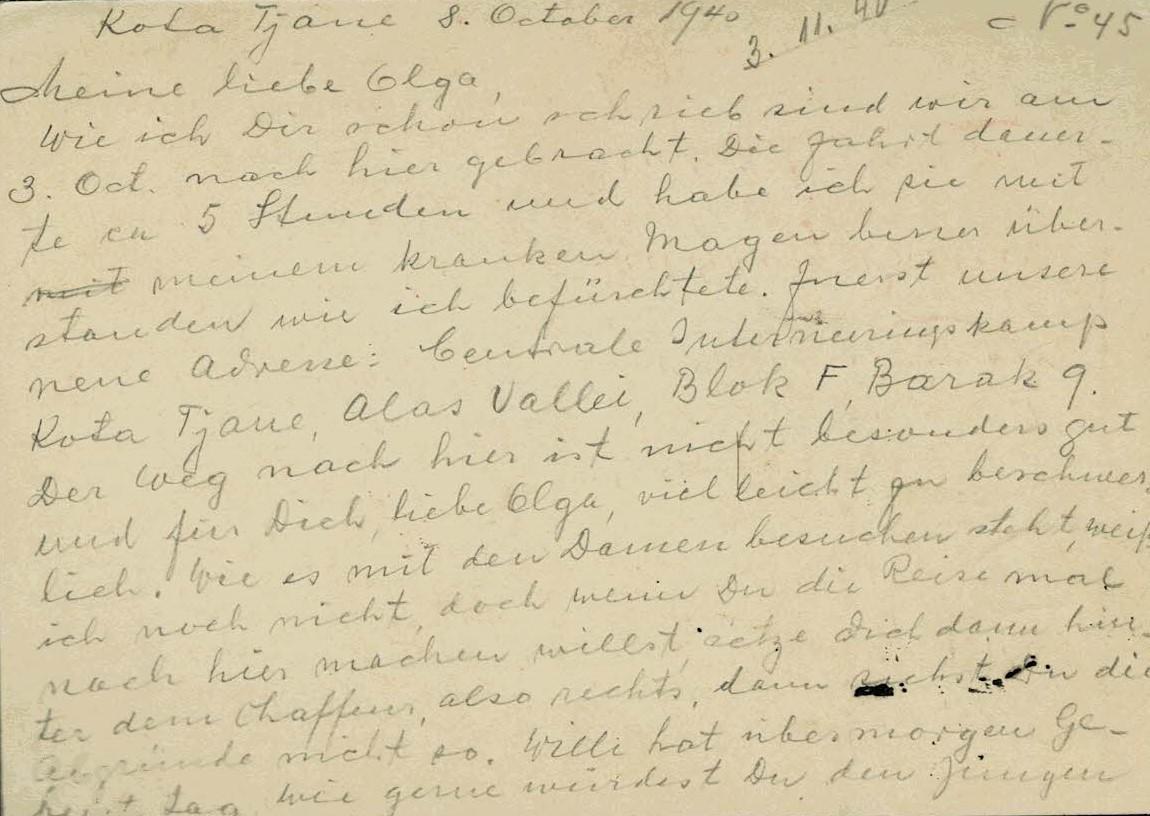 Kota Tjane 8. October 1940
3. 11. 40
No 45
Meine liebe Olga,
Wie ich Dir schon schrieb sind wir am
3. Oct. nach hier gebracht. Die Fahrt dauer-
te ca 5 Stunden und habe ich sie mit
mit meinem kranken Magen besser über-
standen wie ich befürchtete. Zuerst unsere
neue Adresse: Centrale Interneeringskamp
Kota Tjane, Alas Vallei, Blok F, Barak 9.
Der Weg nach hier ist nicht besonders gut
und für Dich, liebe Olga, vielleicht zu beschwer-
lich. Wie es mit den Damen besuchen steht, weiß
ich noch nicht, doch wenn Du die Reise mal
nach hier machen willst, setze Dich dann hin-
ter dem Chaffeur, also rechts, dann siehst Du die
Abgründe nicht so. Willi hat übermorgen Ge-
burtstag. Wie gerne würdest Du den Jungen